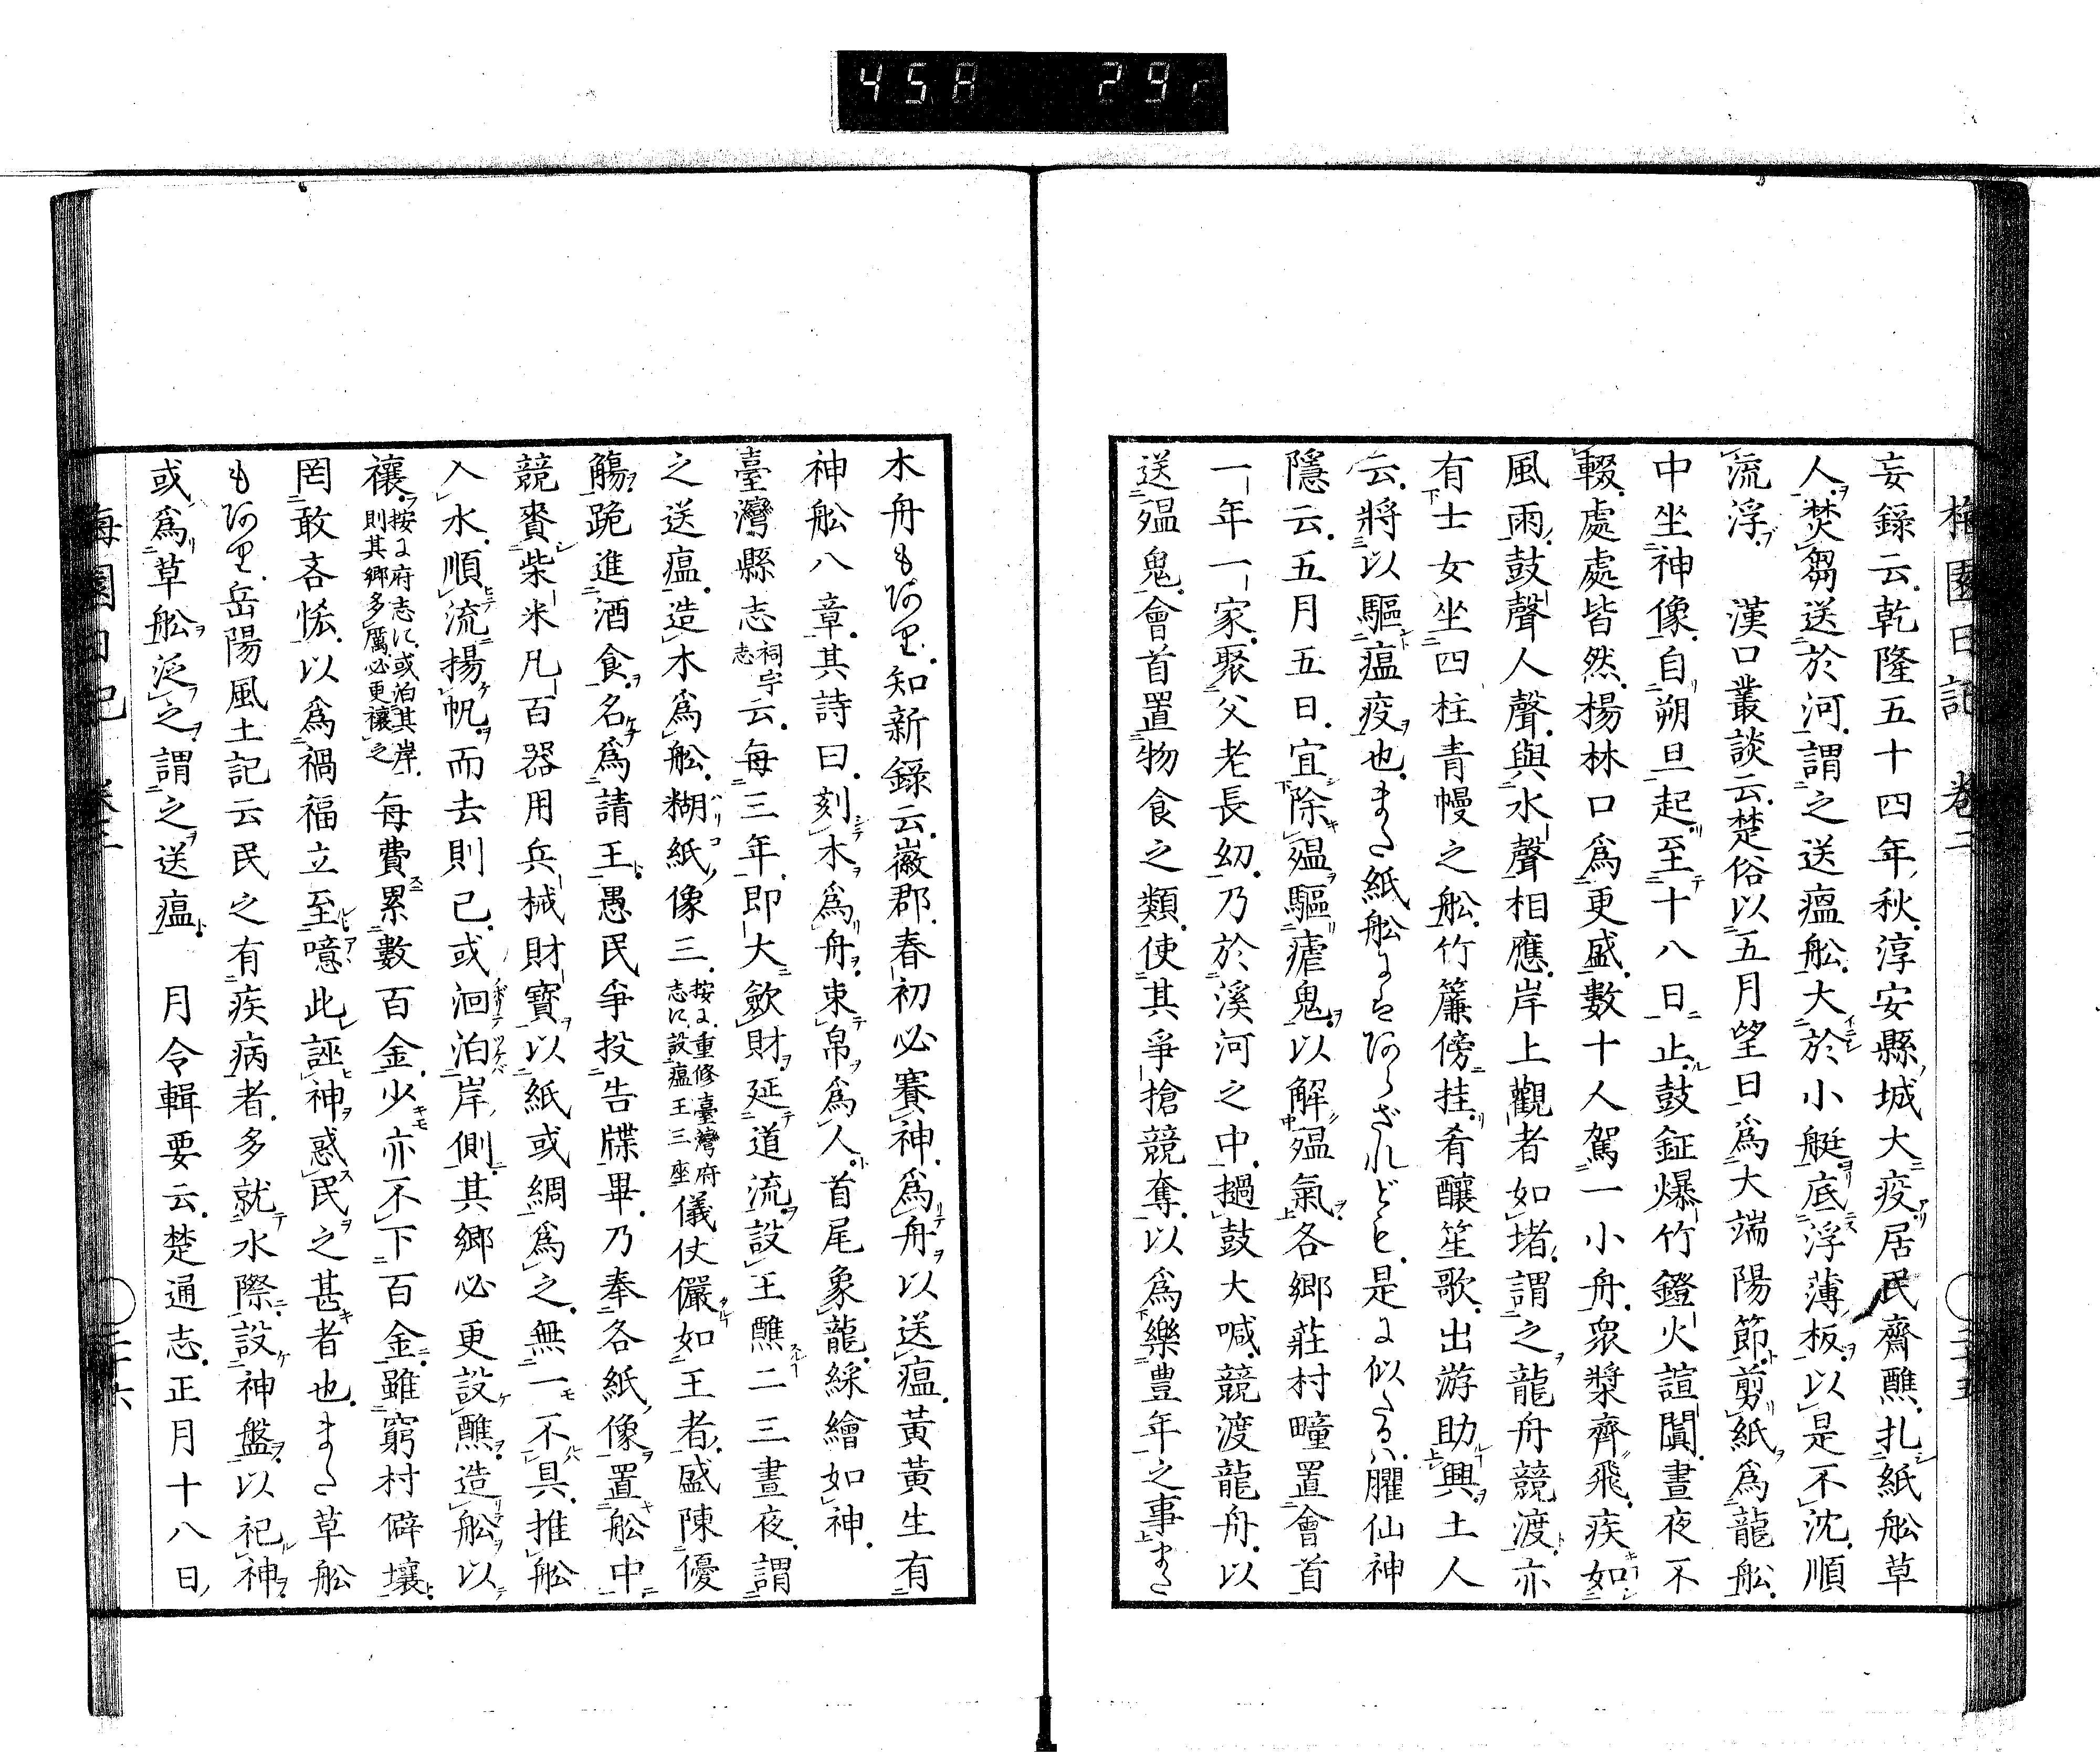 458 292
梅園日記 卷二
妄錄云、乾隆五十四年、秋、淳安縣、城大疫、居民齋醮、扎紙舩草
人、焚芻送於河、謂之送瘟舩、大於小艇、底浮薄板、以是不沈、順
流浮、漢口叢談云、楚俗以五月望日爲大端陽節、剪紙爲龍舩、
中坐神像、自朔旦起至十八日止、鼓鉦爆竹鐙火諠闐、晝夜不
輟、處處皆然、楊林口爲更盛、數十人駕一小舟、衆槳齊飛、疾如
風雨、鼓聲人聲、與水聲相應、岸上觀者如堵、謂之龍舟競渡、亦
有士女坐四柱青幔之舩、竹簾傍挂、肴釀笙歌、出游助興、土人
云、將以驅瘟疫也、また紙舩にはあらざれども、是に似たるハ、臞仙神
隱云、五月五日、宜除殟驅瘧鬼、以解殟氣、各鄉莊村疃置會首
一年一家、聚父老長幼、乃於溪河之中、撾鼓大喊、競渡龍舟、以
送殟鬼、會首置物食之類、使其爭搶競奪、以爲樂豊年之事、また
木舟もあり、知新錄云、徽郡、春初必賽神、爲舟以送瘟、黃黃生有
神舩八章、其詩曰、刻木爲舟、束帛爲人、首尾象龍、綵繪如神、
臺灣縣志祠宇志云、每三年、即大斂財、延道流、設王醮二三晝夜、謂
之送瘟、造木爲舩、糊紙像三、按に、重修臺灣府志に、設瘟王三座儀仗儼如王者、盛陳優
觴、跪進酒食、名爲請王、愚民爭投告牒畢、乃奉各紙像置舩中、
競賚柴米凡百器用兵械財寶、以紙或綢爲之、無一不具、推舩
入水、順流揚帆、而去則已、或洄泊岸側、其鄉必更設醮、造舩以
禳、按に府志に、或泊其岸、則其鄉多厲、必更禳之每費累數百金、少亦不下百金、雖窮村僻壤、
罔敢吝恡、以爲禍福立至、噫此誣神惑民之甚者也、また草舩
もあり、岳陽風土記云民之有疾病者、多就水際、設神盤、以祀神、
或爲草舩泛之、謂之送瘟、月令輯要云、楚通志、正月十八日、
梅園日記 卷二